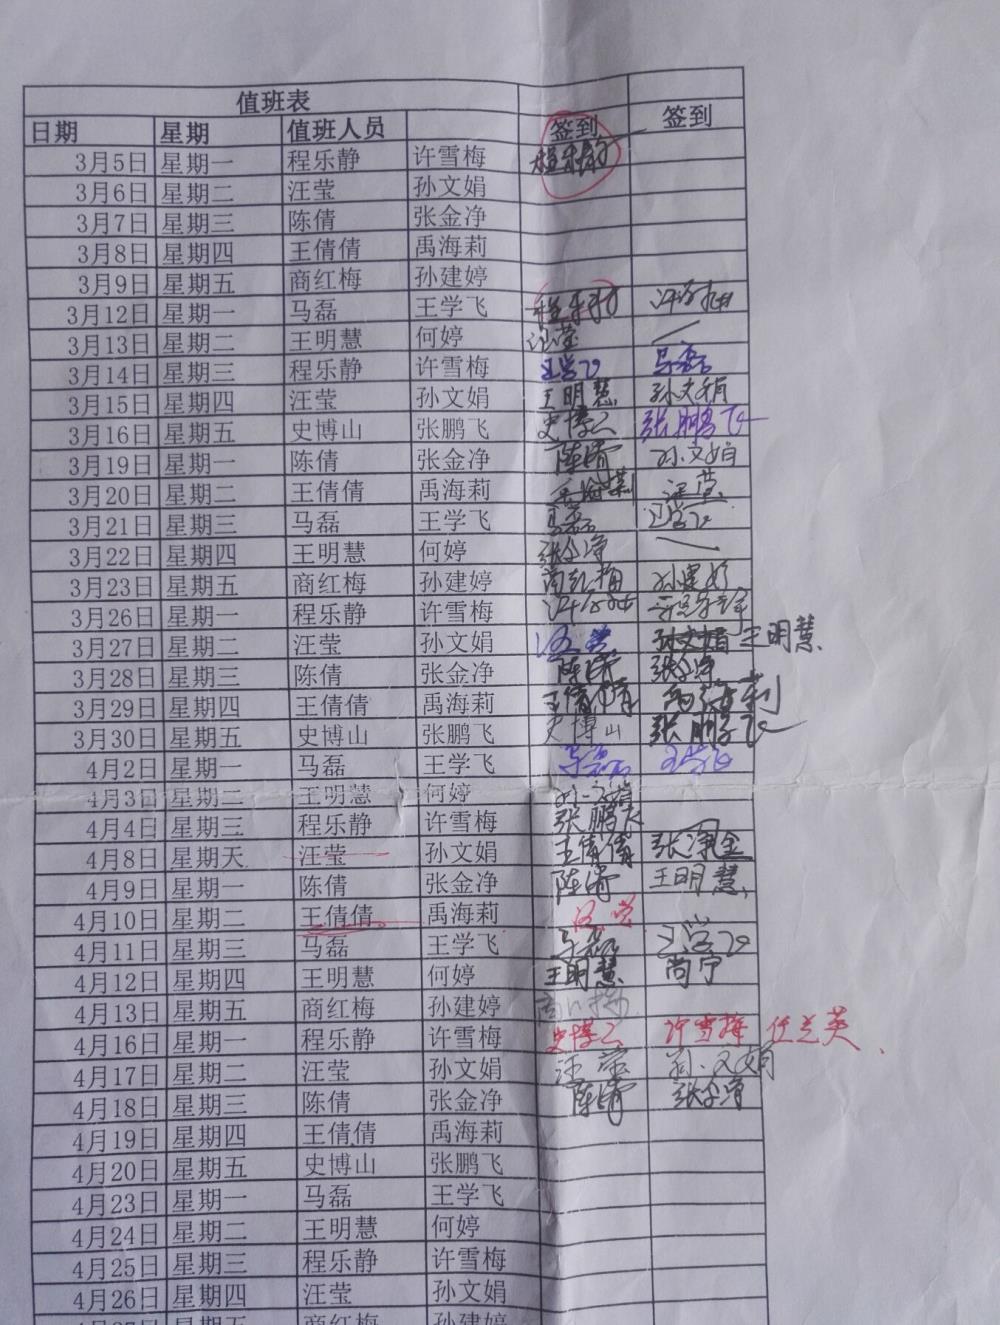 值班表
日期 星期 值班人员 签到 签到
3月5日 星期一 程乐静 许雪梅 程乐静
3月6日 星期二 汪莹 孙文娟
3月7日 星期三 陈倩 张金净
3月8日 星期四 王倩倩 禹海莉
3月9日 星期五 商红梅 孙建婷
3月12日 星期一 马磊 王学飞 程乐静
3月13日 星期二 王明慧 何婷 汪莹
3月14日 星期三 程乐静 许雪梅 王学飞 马磊
3月15日 星期四 汪莹 孙文娟 王明慧 孙文娟
3月16日 星期五 史博山 张鹏飞 史博山 张鹏飞
3月19日 星期一 陈倩 张金净 陈倩 孙文娟
3月20日 星期二 王倩倩 禹海莉 汪莹
3月21日 星期三 马磊 王学飞 马磊 王学飞
3月22日 星期四 王明慧 何婷 张金净
3月23日 星期五 商红梅 孙建婷 商红梅 孙建婷
3月26日 星期一 程乐静 许雪梅
3月27日 星期二 汪莹 孙文娟 汪莹 孙文娟 王明慧
3月28日 星期三 陈倩 张金净 陈倩 张金净
3月29日 星期四 王倩倩 禹海莉 王倩倩 禹海莉
3月30日 星期五 史博山 张鹏飞 史博山 张鹏飞
4月2日 星期一 马磊 王学飞 马磊 王学飞
4月3日 星期二 王明慧 何婷 孙文娟
4月4日 星期三 程乐静 许雪梅 张鹏飞
4月8日 星期天 汪莹 孙文娟 王倩倩 张净金
4月9日 星期一 陈倩 张金净 陈倩 王明慧
4月10日 星期二 王倩倩 禹海莉 汪莹
4月11日 星期三 马磊 王学飞 马磊 王学飞
4月12日 星期四 王明慧 何婷 王明慧 尚宁
4月13日 星期五 商红梅 孙建婷
4月16日 星期一 程乐静 许雪梅 史博山 许雪梅 任兰英
4月17日 星期二 汪莹 孙文娟 汪莹 孙文娟
4月18日 星期三 陈倩 张金净 陈倩 张金净
4月19日 星期四 王倩倩 禹海莉
4月20日 星期五 史博山 张鹏飞
4月23日 星期一 马磊 王学飞
4月24日 星期二 王明慧 何婷
4月25日 星期三 程乐静 许雪梅
4月26日 星期四 汪莹 孙文娟
4月27日 星期五 商红梅 孙建婷